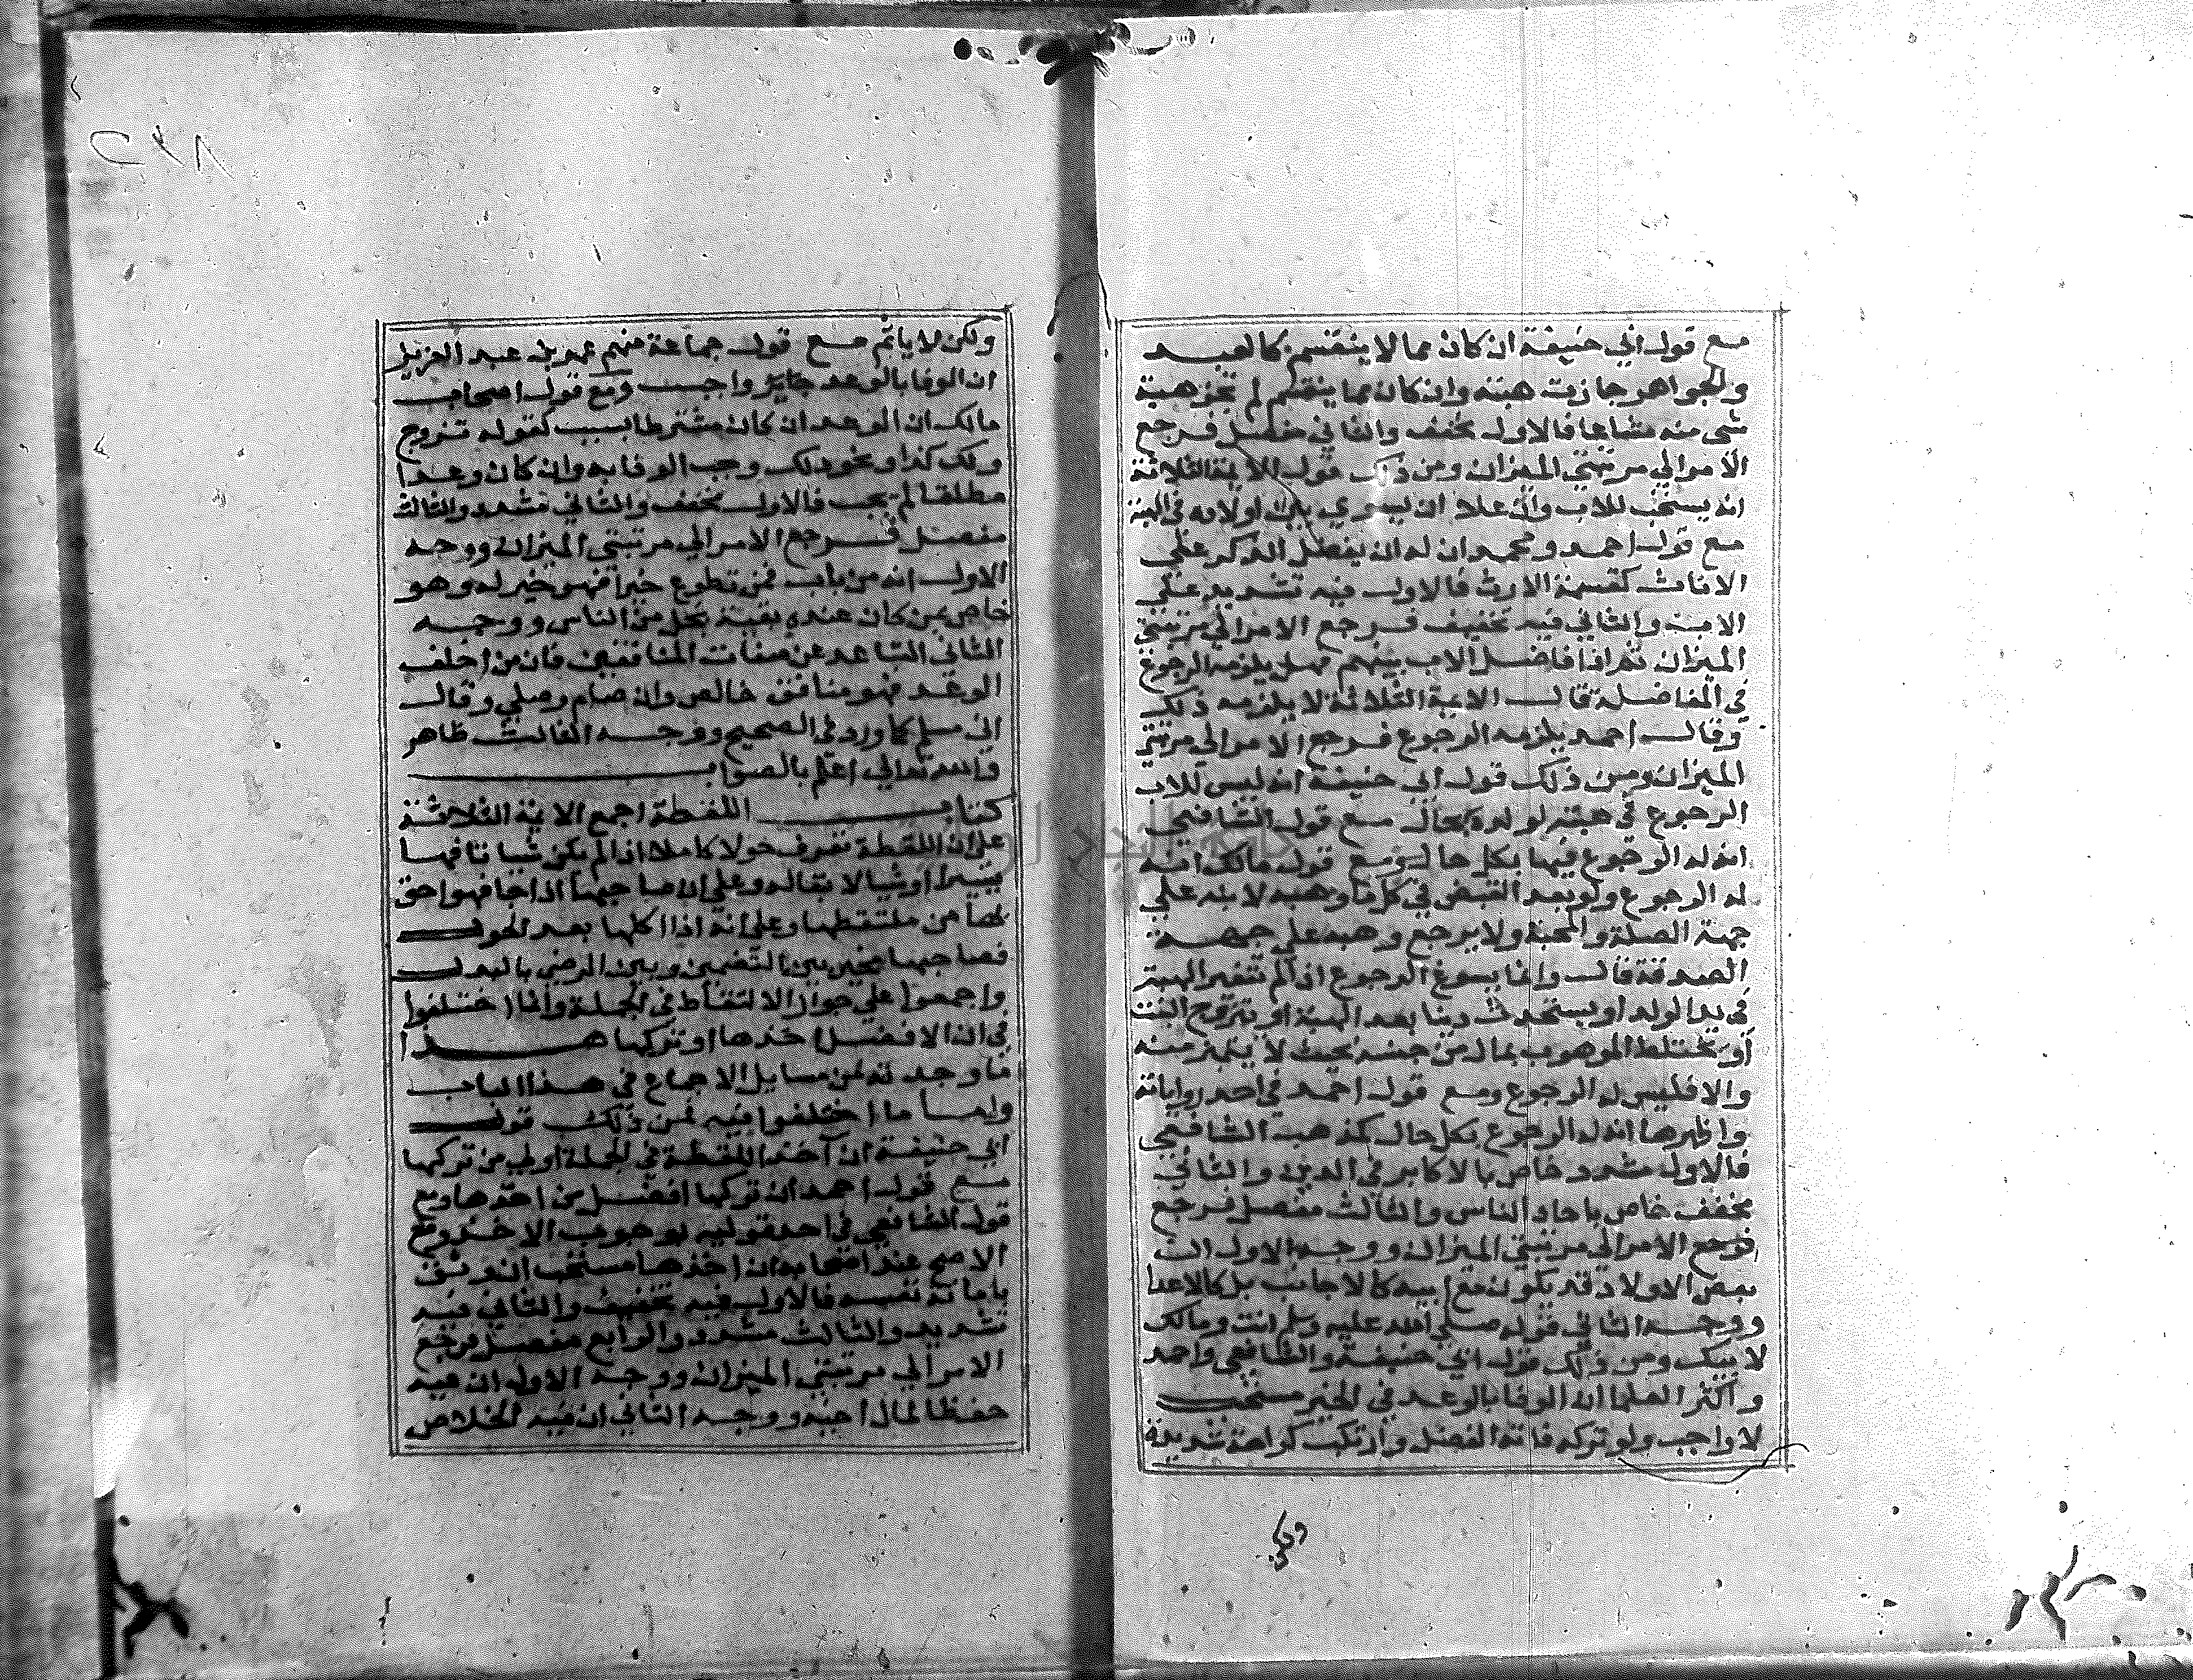 مع قول ابي حنيفة ان كان مما لا ينقسم كالعبد
والجواهر جازت هبته وان كان مما ينقسم لم تجز هبة
شي منه مشاعا فالاول مخفف والثاني مفصل فرجع
الامر الي مرتبتي الميزان ومن ذلك قول الايمة الثلاثة
انه يستحب للاب وان علا ان يسوي بين اولاده في الهبة
مع قول احمد ومحمد ان له ان يفضل الذكر علي
الاناث كقسمة الارث فالاول فيه تشديد علي
الاب والثاني فيه تخفيف فرجع الامر الي مرتبتي
الميزان ثم اذا فاضل الاب بينهم فهل يلزمه الرجوع
في المفاضلة قال الايمة الثلاثة لا يلزمه ذلك
وقال احمد يلزمه الرجوع فرجع الامر الي مرتبتي
الميزان ومن ذلك قول ابي حنيفة انه ليس للاب
الرجوع في هبته لولده بحال مع قول الشافعي
انه له الرجوع فيها بكل حال ومع قول مالك انه
له الرجوع ولو بعد القبض في كل ما وهبه لابنه علي
جهة الصلة والمحبة ولا يرجع وهبه علي جهة
الصدقة قال وانما يسوغ الرجوع اذا لم تتغير الهبة
في يد الولد او يستحدث دينا بعد الهبة او تتزوج البنت
او يختلط الموهوب بمال من جنسه بحيث لا يتميز منه
والا فليس له الرجوع ومع قول احمد في احد رواياته
واظهرها انه له الرجوع بكل حال كمذهب الشافعي
فالاول مشدد خاص بالاكابر في الدين والثاني
مخفف خاص باحاد الناس والثالث مفصل فرجع
فرجع الامر الي مرتبتي الميزان ووجه الاول ان
بعض الاولاد قد يكون مع ابيه كالاجانب بل كالاعدا
ووجه الثاني قوله صلي الله عليه وسلم انت ومالك
لابيك ومن ذلك قول ابي حنيفة والشافعي واحمد
واكثر العلما ان الوفا بالوعد في الخير مستحب
لا واجب ولو تركه فاته الفضل وارتكب كراهة شديدة
ولكن
ولكن لا ياثم مع قول جماعة منهم عمر بن عبد العزيز
ان الوفا بالوعد واجب ومع قول اصحاب
مالك ان الوعد ان كان مشترطا بسبب كقوله تزوج
ولك كذا ونحو ذلك وجب الوفا به وان كان وعدا
مطلقا لم يجب فالاول مخفف والثاني مشدد والثالث
مفصل فرجع الامر الي مرتبتي الميزان ووجه
الاول انه من باب فمن تطوع خيرا فهو خير له وهو
خاص بمن كان عنده بقية بخل من الناس ووجه
الثاني التباعد عن صفات المنافقين فان من اخلف
الوعد فهو منافق خالص وان صام وصلي وقال
اني مسلم كما ورد في الصحيح ووجه الثالث ظاهر
والله تعالي اعلم بالصواب
كتاب اللقطة اجمع الايمة الثلاثة
علي ان اللقطة تعرف حولا كاملا اذا لم يكن شيا تافها
يسيرا او شيا لا بقا له وعلي ان صاحبها اذا جا فهو احق
بها من ملتقطها وعلي انه اذا اكلها بعد الحول
فصاحبها مخير بين التضمين وبين الرضي بالبدل
واجمعوا علي جواز الالتقاط في الجملة وانما اختلفوا
في ان الافضل اخذها او تركها هذا
ما وجدته من مسايل الاجماع في هذا الباب
واما ما اختلفوا فيه فمن ذلك قول
ابي حنيفة ان اخذ اللقطة في الجملة اولي من تركها
مع قول احمد ان تركها افضل من اخذها ومع
قول الشافعي في احد قوليه بوجوب الاخذ ومع
الاصح عند اصحابه ان اخذها مستحب ان وثق
بامانة نفسه فالاول فيه تخفيف والثاني فيه
تشديد والثالث مشدد والرابع مفصل فرجع
الامر الي مرتبتي الميزان ووجه الاول ان فيه
حفظا لمال اخيه ووجه الثاني ان فيه الخلاص